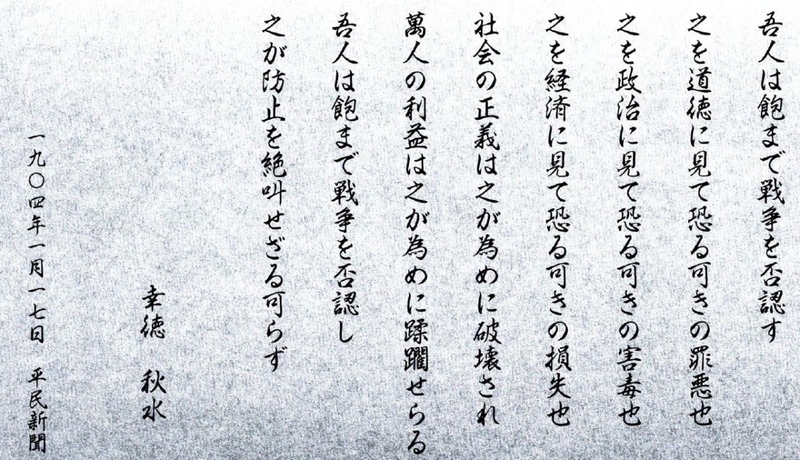 吾人は飽まで戦争を否認す
之を道徳に見て恐る可きの罪悪也
之を政治に見て恐る可きの害毒也
之を経済に見て恐る可きの損失也
社会の正義は之が為めに破壊され
萬人の利益は之が為めに蹂躙せらる
吾人は飽まで戦争を否認し
之が防止を絶叫せざる可らず
幸徳 秋水
一九〇四年一月一七日 平民新聞